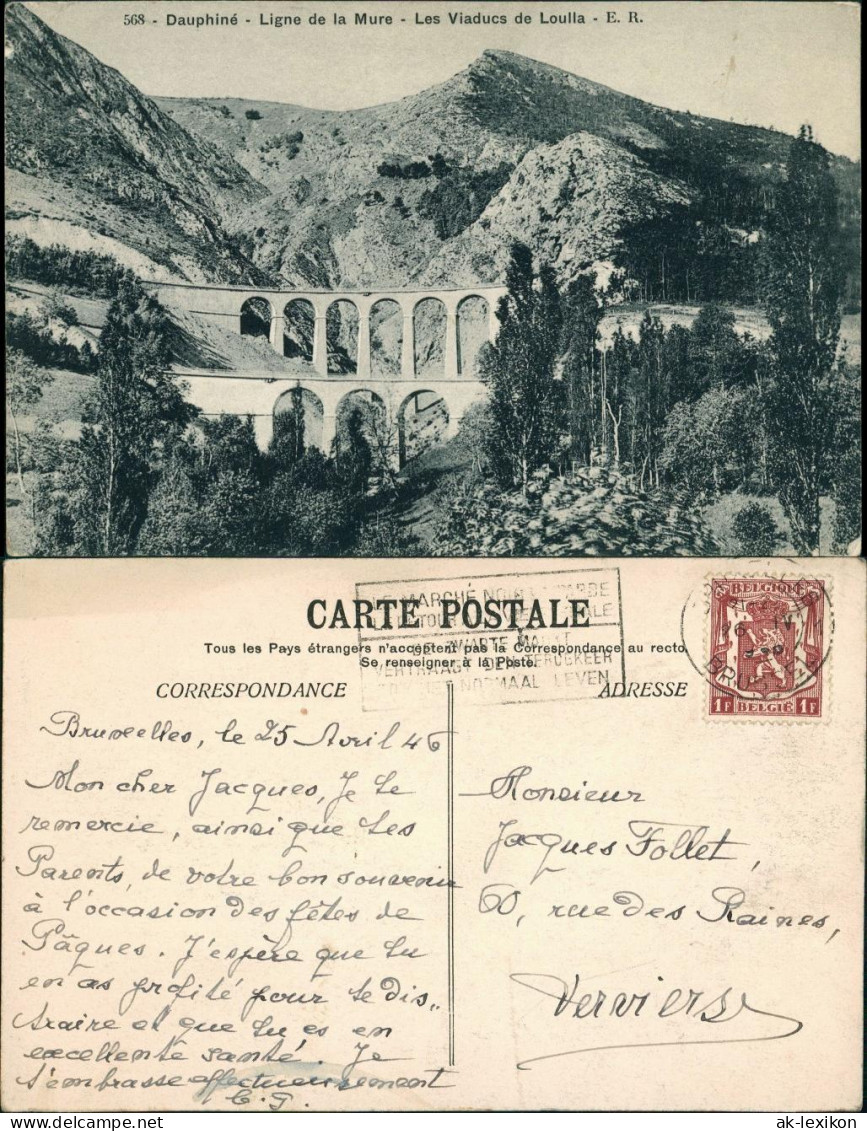 568 - Dauphiné - Ligne de la Mure - Les Viaducs de Loulla - E. R.
CARTE POSTALE
Tous les Pays étrangers n'acceptent pas la Correspondance au recto.
Se renseigner à la Poste.
CORRESPONDANCE
ADRESSE
LE MARCHÉ NOIR
MARKT
VERTRAAGT DEN TERUGKEER
NORMAAL LEVEN
BELGIQUE
1F BELGIË 1F
Bruxelles, le 25 Avril 46
Mon cher Jacques, Je te
remercie, ainsi que tes
Parents, de votre bon souvenir
à l'occasion des fêtes de
Pâques. J'espère que tu
en as profité pour te dis„
traire et que tu es en
excellente santé. Je
t'embrasse affectueusement
C. G.
Monsieur
Jacques Follet,
60, rue des Raines,
Verviers
ak-lexikon